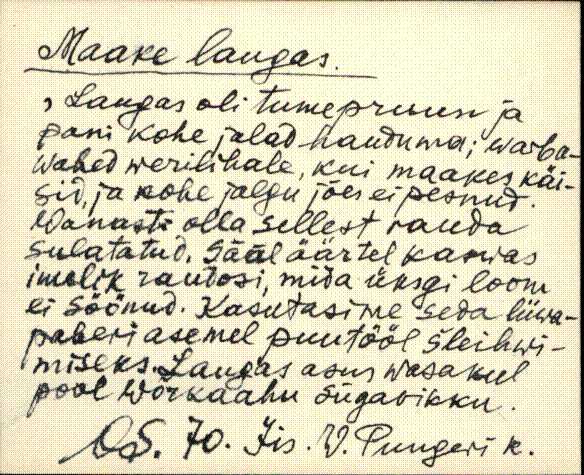 Maake laugas.
, Laugas oli tumepruun ja
pani kohe jalad hauduma; warba-
wahed werilihale, kui maakes käi-
sid, ja kohe jalgu jões ei pesnud.
Wanasti olla sellest rauda
sulatatud. Sääl äärtel kaswas
imelik rautosi, mida üksgi loom
ei söönud. Kasutasime seda liiwa-
paberi asemel puutööl šleihwi-
miseks. Laugas asus wasakul
pool Wõrkaahu sügavikku.
70. Jis. W. Pungeri k.